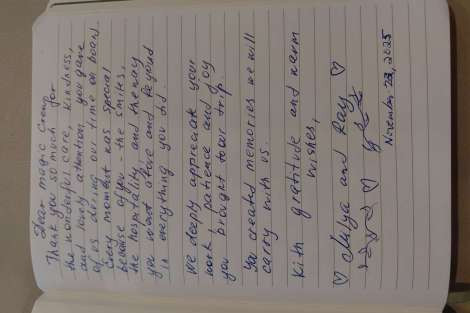 Dear magic crew,
Thank you so much for
the wonderful care, kindness,
and lovely attention you gave
of us during our time on board.
Every moment was special
because of you - the smiles,
the hospitality, and the way
you went above and beyond
in everything you did.
We deeply appreciate your
work, patience and joy
you brought to our trip.
You created memories we will
carry with us.
With gratitude and warm
wishes,
and Ray
November 23, 2025